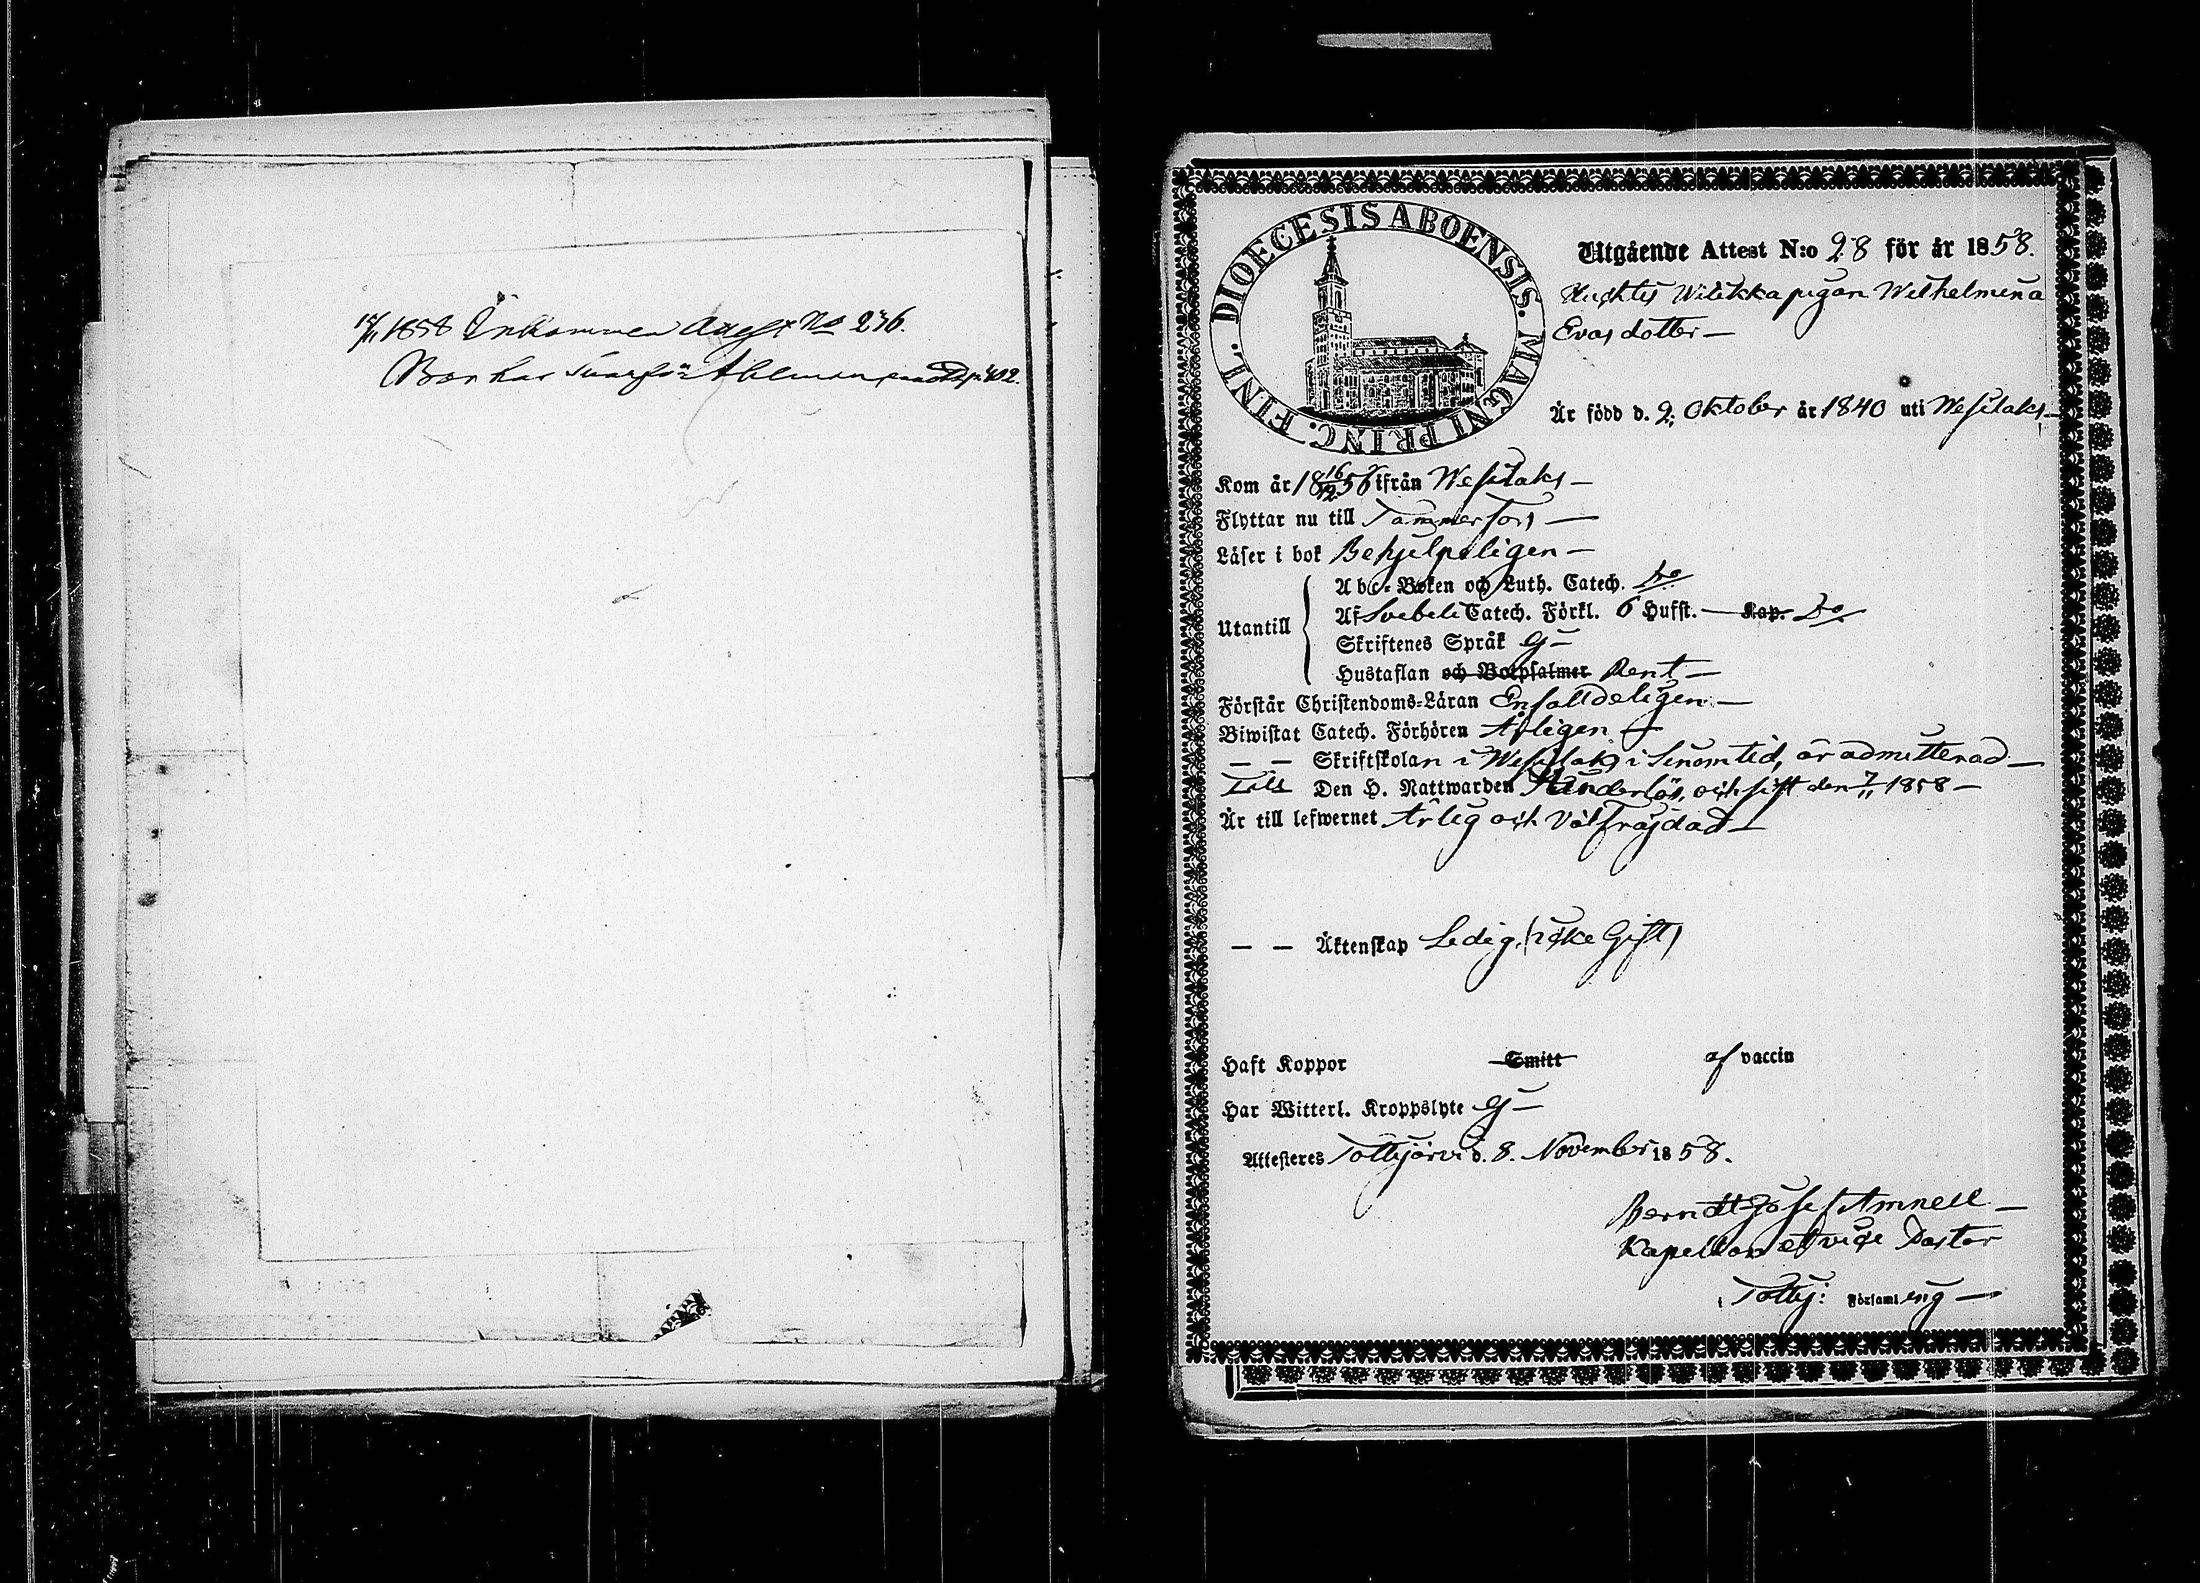 1858 Inkommen Attest No 236.
Bor hos
DIOECESIS ABOENSIS. MAGNI PRINC. FINL.
Utgående Attest N:o 28 för år 1858.
pigan Wilhelmina
Evasdotter —
Är född d. 2. Oktober år 1840 uti Wesilaks —
Kom år 18 16/12 56 ifrån Wesilaks —
Flyttar nu till Tammerfors —
Läser i bok Behjelpeligen —
Utantill
Abc-Boken och Luth. Catech. Do
Af Svebeli Catech. Förkl. 6 Hufst. — Kap. Do
Skriftenes Språk Ej —
Hustaflan och Botpsalmer Rent —
Förstår Christendoms-Läran Enfalldeligen —
Biwistat Catech. Förhören Årligen —
— — Skriftskolan i Wesilaks i sinom tid, är admitterad —
Till Den H. Nattwarden Hinderlös, och sist den 7/11 1858 —
Är till lefwernet Ärlig och Välfräjdad —
— — Äktenskap Ledig, (icke Gift)
Haft Koppor Smitt af vaccin
Har Witterl. Kroppslyte Ej —
Attesteres Tottijärvi d. 8. November 1858.
Berndt Josef Amnell —
Kapellan et vice Pastor
i Tottij: Församling —